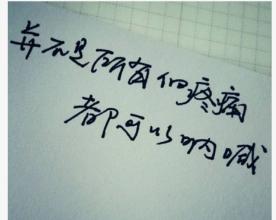 并不是所有的疼痛
都可以呐喊